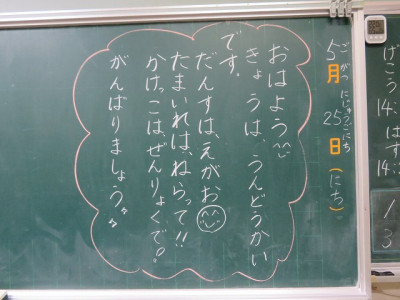 5月25日(にち)
ごがつにじゅうごにち
おはよう
きょうは、うんどうかい
です。
だんすは、えがお
たまいれは、ねらって!!
かけっこは、ぜんりょくで。
がんばりましょう。
げこう
14:
はす
14:
1
3